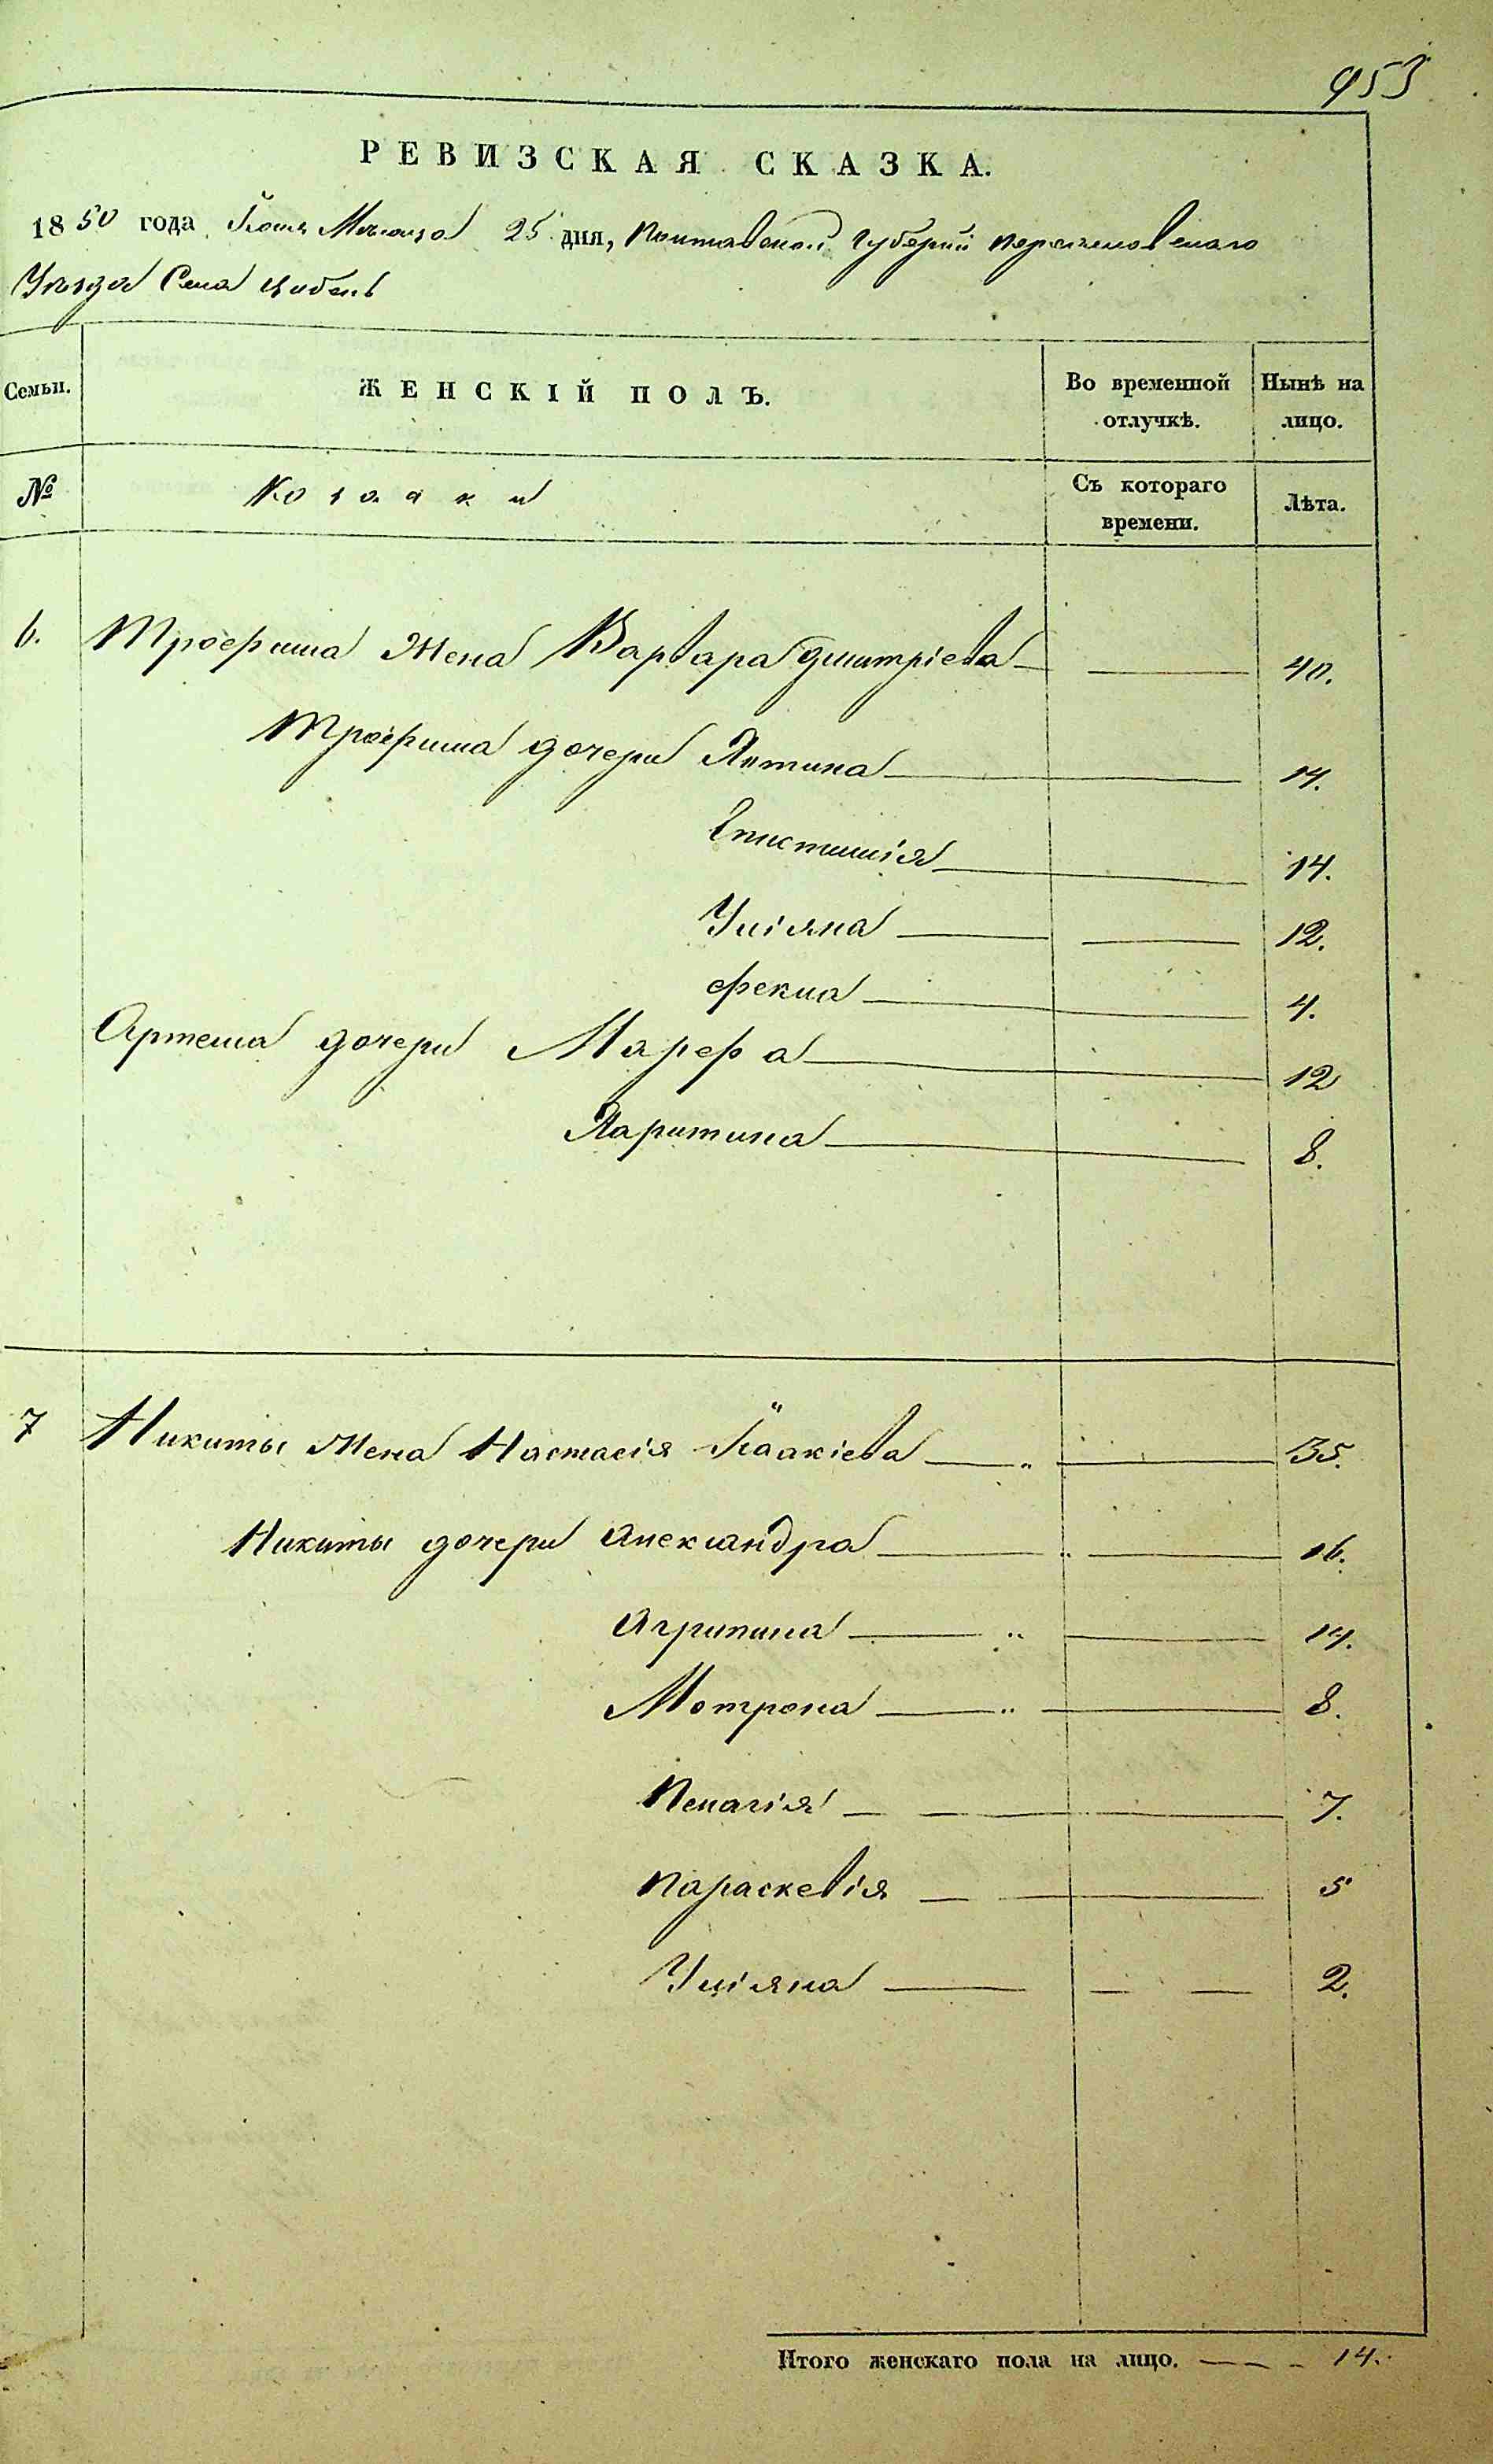 953
РЕВИЗСКАЯ СКАЗКА.
1850 года Іюня Месяца 25 дня, Полтавской Губерніи Переяславского
Уезда Села Цибель
Семьи. ЖЕНСКІЙ ПОЛЪ. Во временной отлучкѣ. Нынѣ на лицо.
№ Козачки Съ котораго времени. Лѣта.
6. Трофима Жена Варвара Дмитріева 40.
Трофима дочери Устина 14.
Епистимія 14.
Уліяна 12.
Фекла 4.
Артема дочери Марфа 12
Харитина 8.
7 Никиты Жена Настасія Ісаакіева 35.
Никиты дочери Александра 16.
Агрипина 14.
Мотрона 8.
Пелагія 7.
Параскевія 5
Уліяна 2.
Итого женскаго пола на лицо. 14.